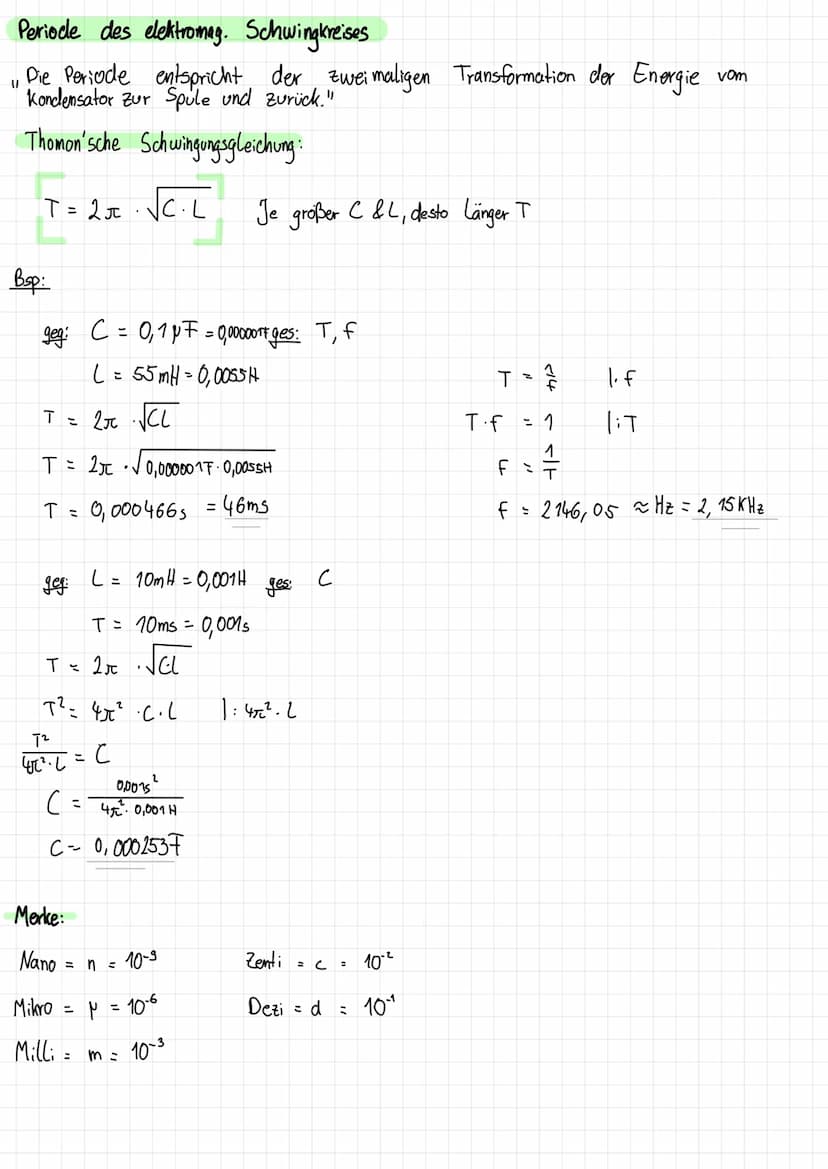 Periode des elektromag. Schwingkreises
"Die Periode entspricht der zweimaligen Transformation der Energie vom
Kondensator zur Spule und zurück."
Thomon'sche Schwingungsgleichung:
T = 2π · √C·L Je größer C & L, desto länger T
Bsp:
geg: C = 0,1μF = 0,0000001F ges: T, f
L = 55mH = 0,0055H
T = 1/f |·f
T = 2π · √CL
T·f = 1 |:T
T = 2π · √0,0000001F · 0,0055H
f = 1/T
T = 0,000466s = 46ms
f = 2146,05 ≈ Hz = 2,15KHz
geg: L = 10mH = 0,001H ges: C
T = 10ms = 0,001s
T = 2π · √C·L
T² = 4π² · C · L |: 4π² · L
T²/4π²·L = C
C = 0,001s²/4π² · 0,001H
C = 0,000253F
Merke:
Nano = n = 10⁻⁹ Zenti = c = 10⁻²
Mikro = μ = 10⁻⁶ Dezi = d = 10⁻¹
Milli = m = 10⁻³